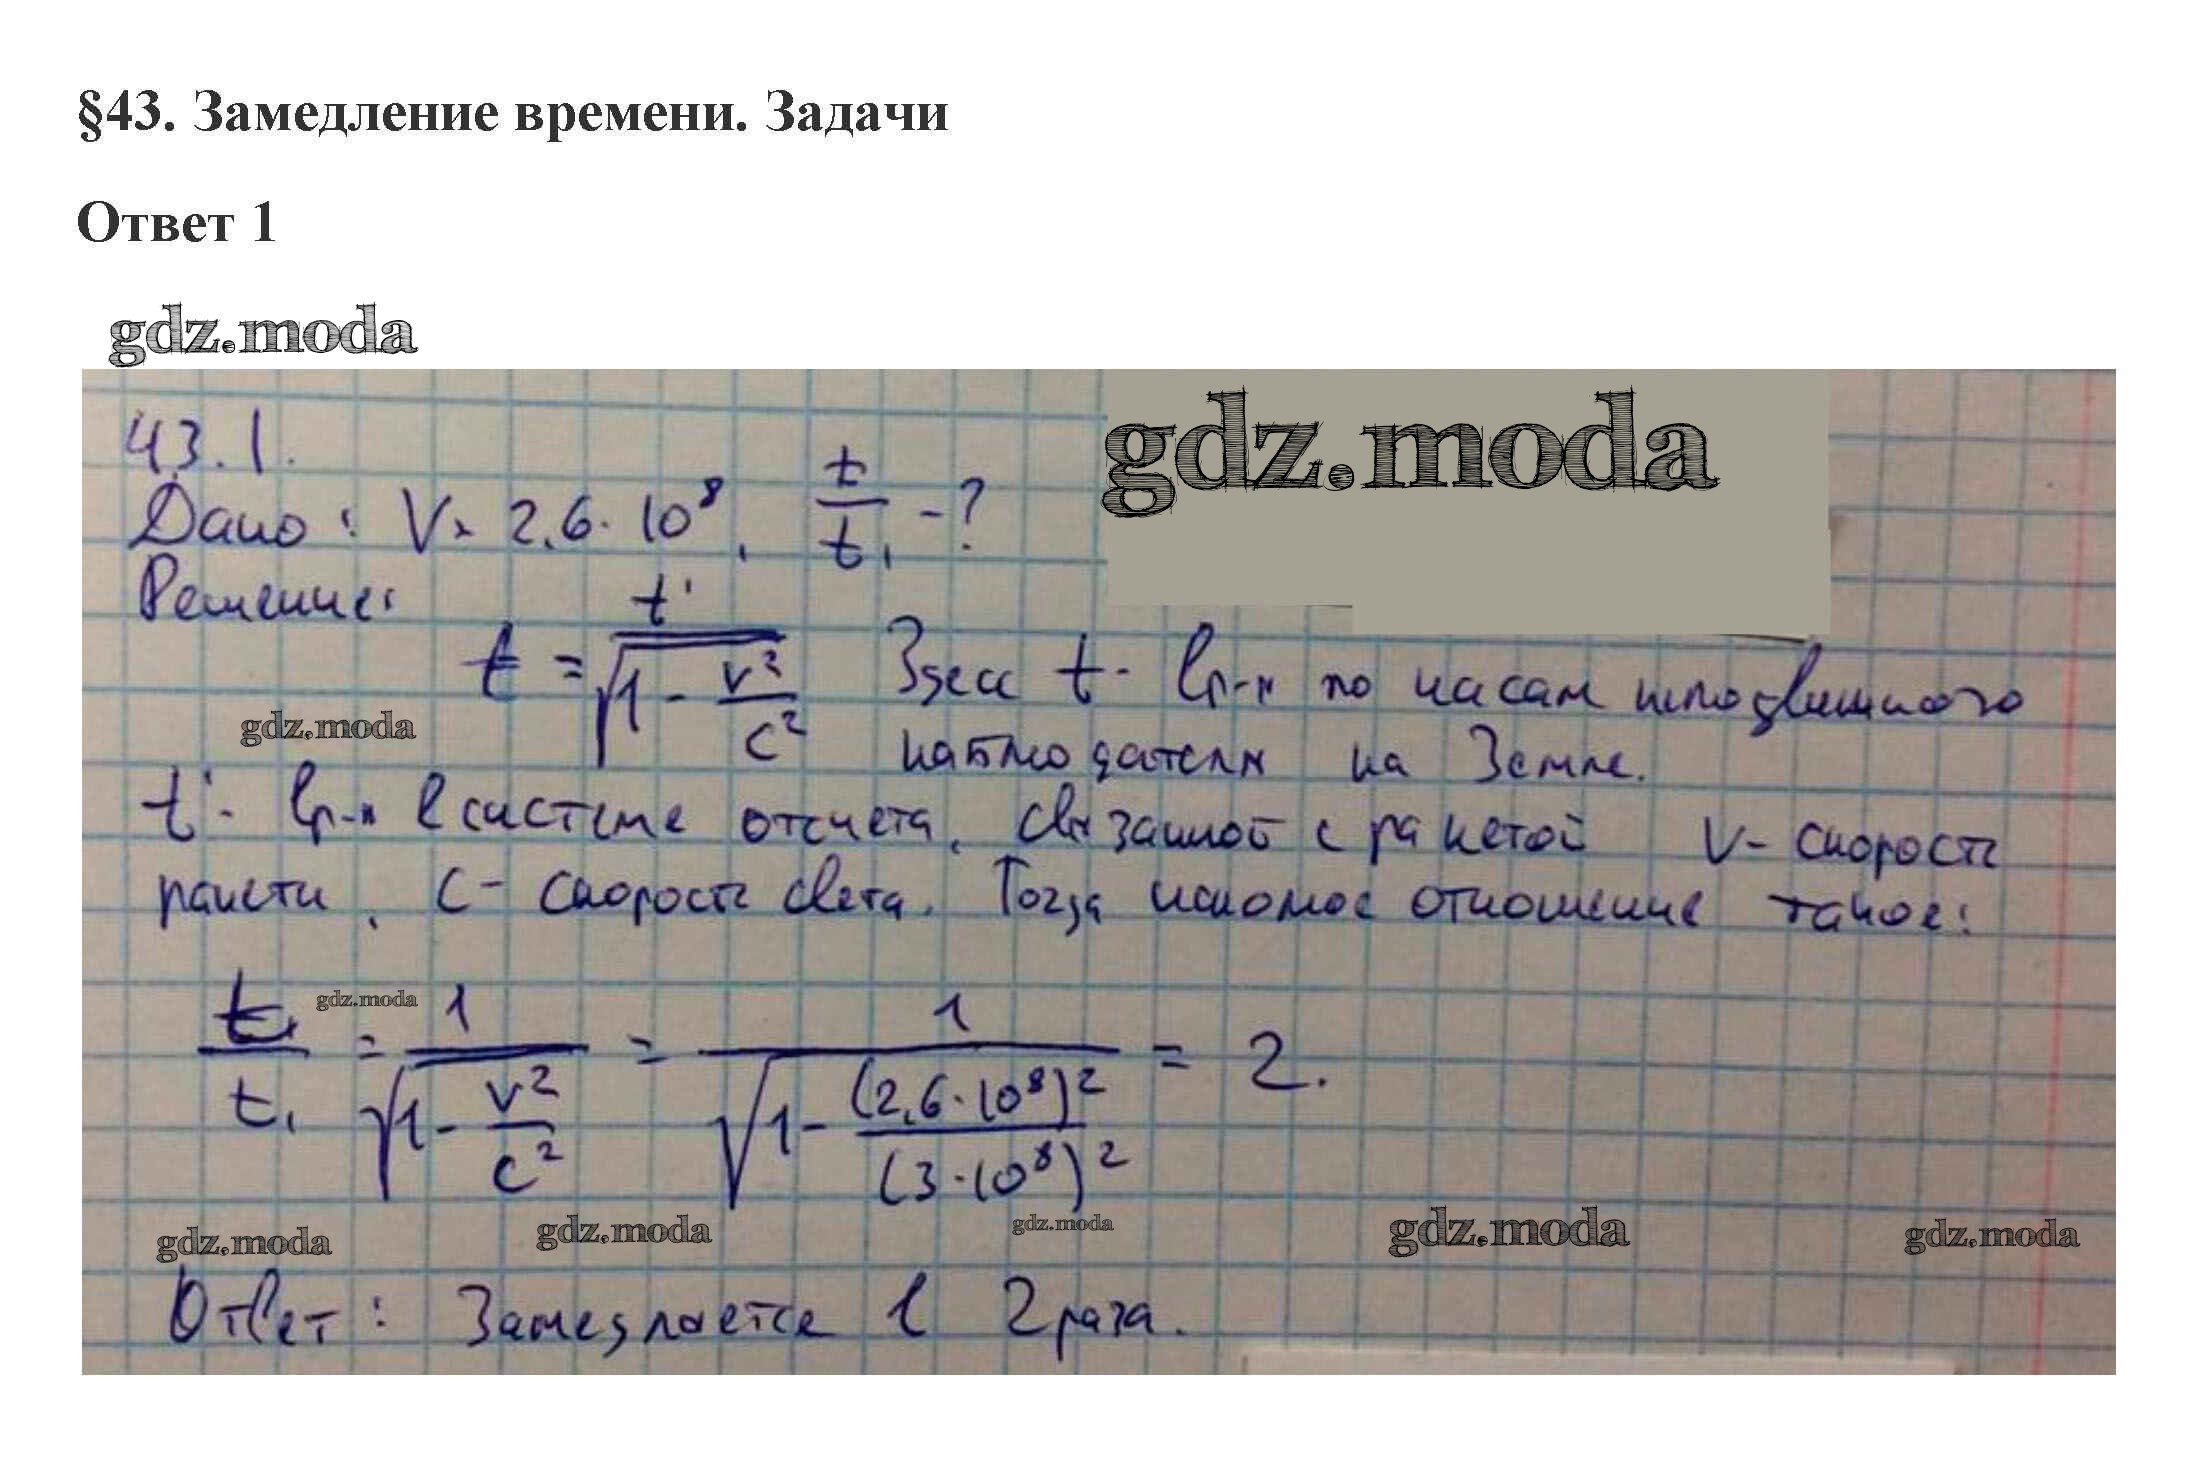 §43. Замедление времени. Задачи
Ответ 1
gdz.moda
gdz.moda
43.1.
Дано: V = 2,6·10⁸, t/t₁ - ?
Решение:
t = t'/√(1 - v²/c²) Здесь t - вр-я по часам неподвижного
gdz.moda
наблюдателя на Земле.
t' - вр-я в системе отсчета, связанной с ракетой V - скорость
ракеты, С - скорость света. Тогда искомое отношение такое:
gdz.moda
t/t₁ = 1/√(1 - v²/c²) = 1/√(1 - (2,6·10⁸)²/(3·10⁸)²) = 2.
gdz.moda gdz.moda gdz.moda gdz.moda gdz.moda
Ответ: Замедляется в 2 раза.